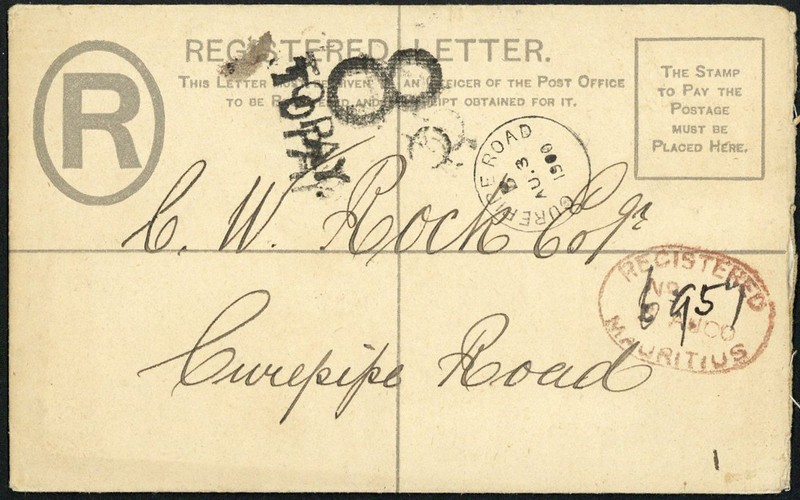 REGISTERED LETTER.
THIS LETTER MUST BE GIVEN TO AN OFFICER OF THE POST OFFICE
TO BE REGISTERED AND A RECEIPT OBTAINED FOR IT.
R
THE STAMP
TO PAY THE
POSTAGE
MUST BE
PLACED HERE.
TO PAY.
TO PAY
CUREPIPE ROAD
AU 3
00
C. W. Rock Esqr
Curepipe Road
REGISTERED
No
6957
AU 00
MAURITIUS
1